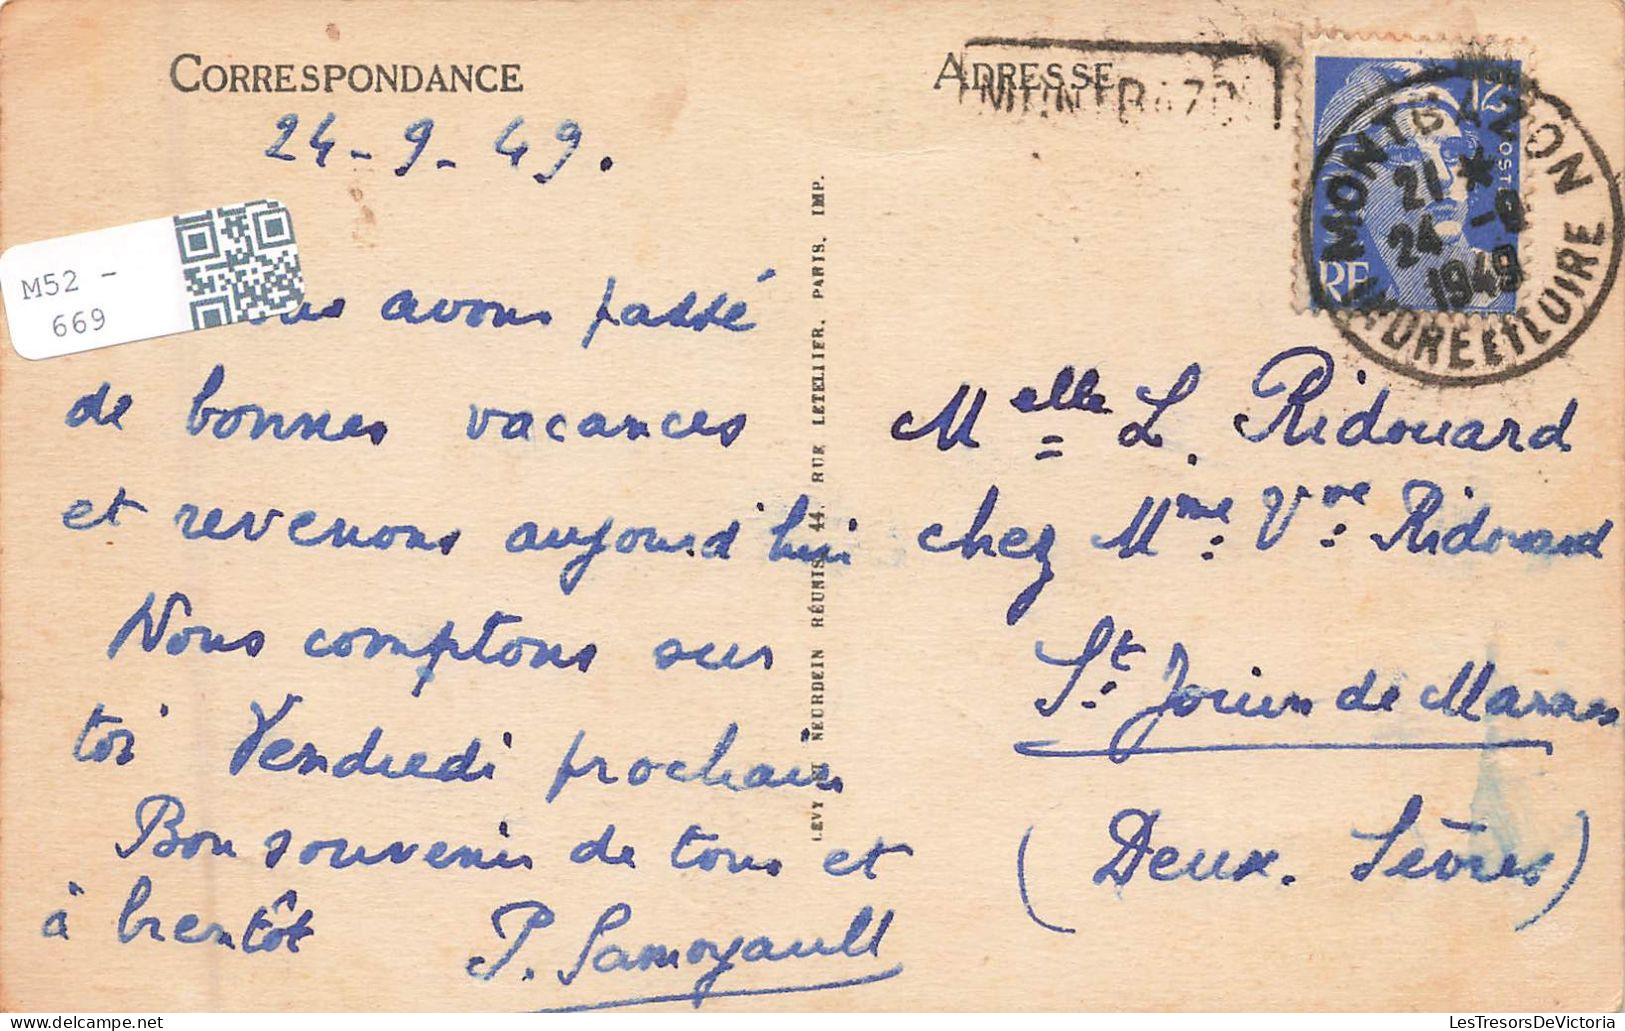 CORRESPONDANCE
24-9-49.
M52 -
669
avons passé
de bonnes vacances
et revenons aujourd'hui
Nous comptons sur
toi Vendredi prochain
Bon souvenir de tous et
à bientôt P. Samoyault
LEVY ET NEURDEIN RÉUNIS, 44, RUE LETELLIER, PARIS, IMP.
ADRESSE
MONTBAZON
MONTBAZON
21 *
24 -9
1949
INDRE ET LOIRE
RF
Melle L. Ridouard
chez Mme Vve Ridouard
St Jouin de Marnes
(Deux-Sèvres)
LesTresorsDeVictoria - LesTresorsDeVictoria